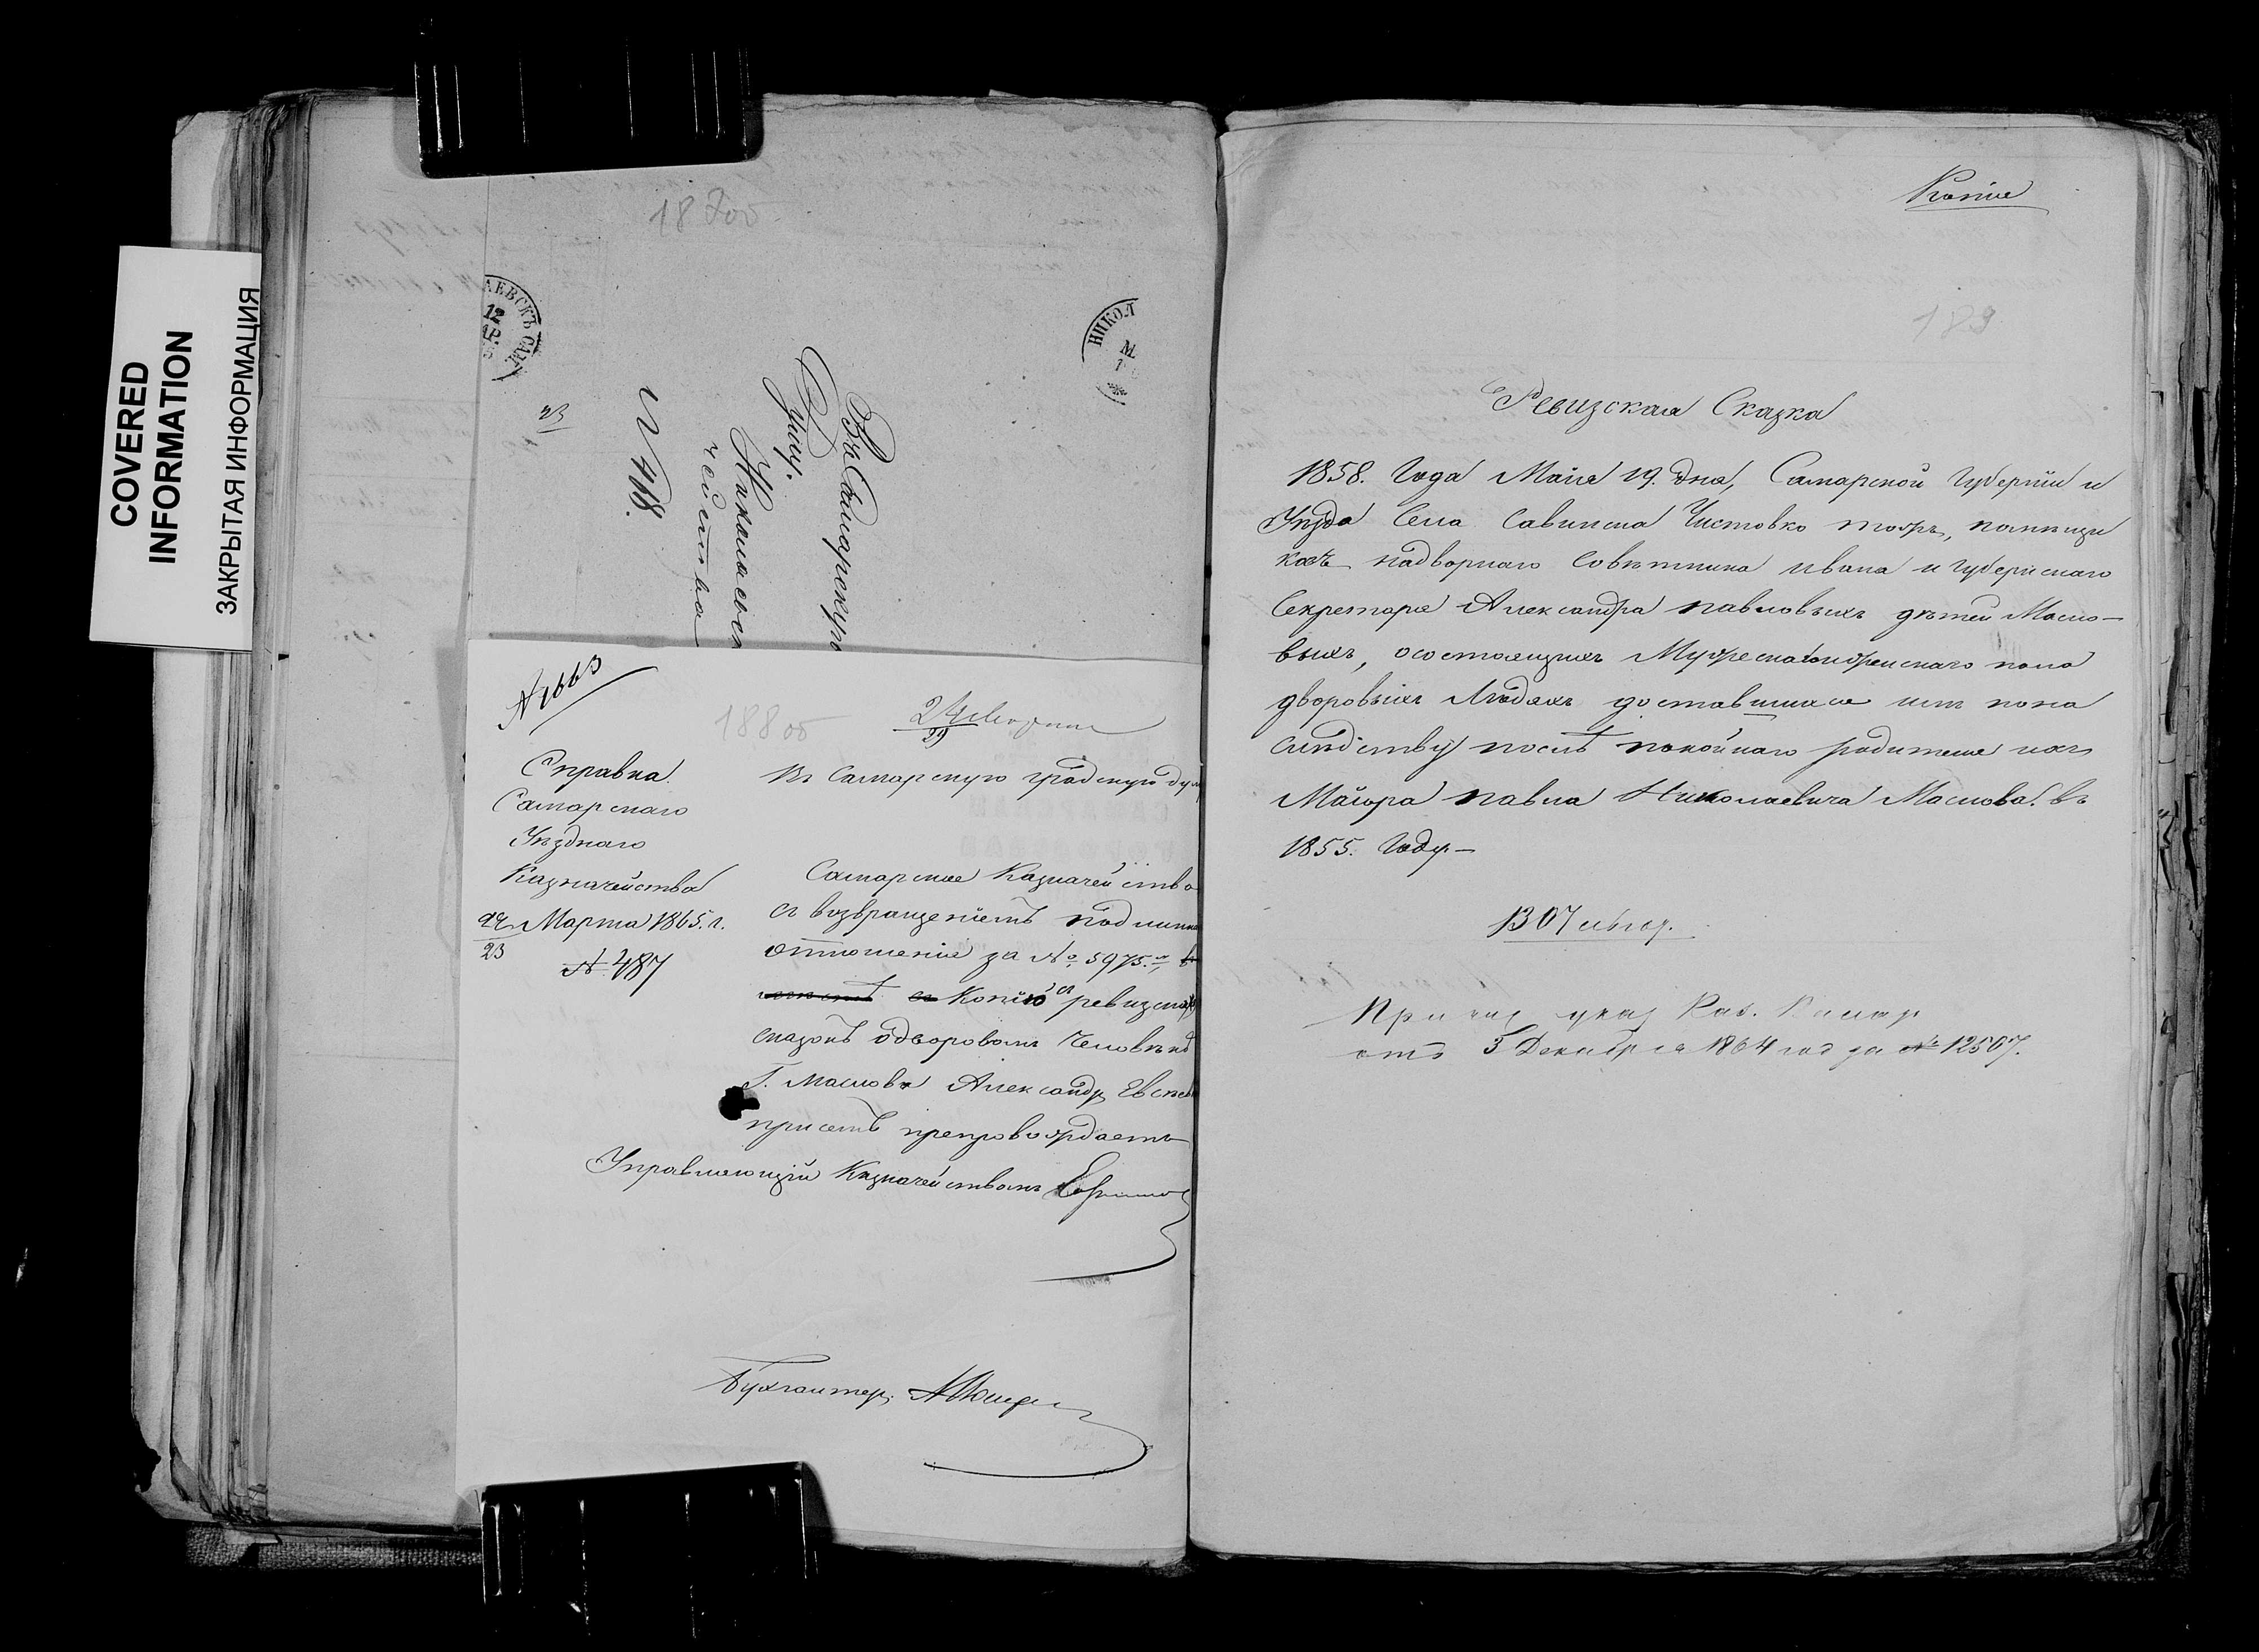 COVERED
INFORMATION
ЗАКРЫТАЯ ИНФОРМАЦИЯ
188об
АЕВСКЪ САМ
12
НИКОЛ
М
23
Въ Самарскую
Думу.
Николаевск
чейства
№ 418.
№1663
188об
24 Марта
29
Справка
Самарскаго
Уѣзднаго
Казначейства
22 Марта 1865. г.
23
№ 487
Въ Самарскую градскую дум
Самарское Казначейство
съ возвращеніемъ подлинна
отношенія за № 5975.
копію съ ревизской
сказокъ о дворовомъ человѣкѣ
Г. Маслова Александр Евсѣев
при семъ препровождаетъ
Управляющій Казначействомъ
Бухгалтер.
Копія
189
Ревизская Сказка
1858. Года Маія 19. дня, Самарской Губерніи и
Уѣзда Села Савинска Чистовка тожъ, помѣщи
ковъ надворнаго Совѣтника Ивана и Губернскаго
Секретаря Александра Павловыхъ дѣтей Масло-
выхъ, о состоящихъ Мужеска и женскаго пола
дворовыхъ Людяхъ доставшихся имъ по на
слѣдству послѣ покойнаго родителя ихъ
Маіора Павла Николаевича Маслова. въ
1855. Году.-
1307
указ Каз. Палат
отъ 3 Декабря 1864 год за № 12507.